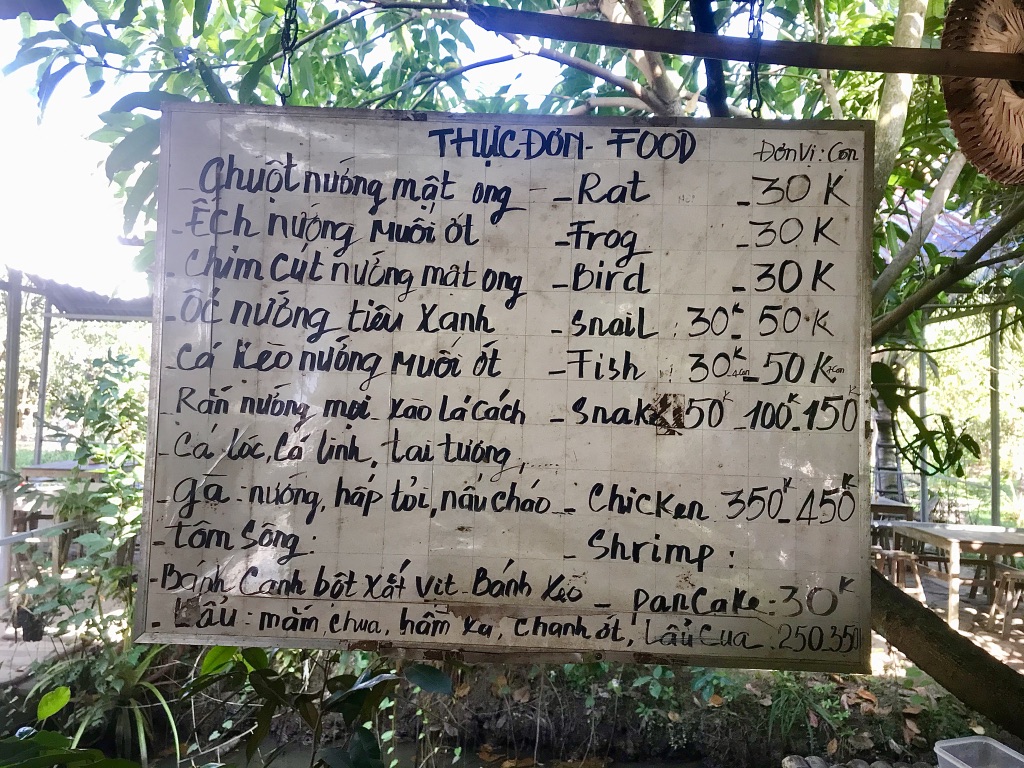 THỰC ĐƠN - FOOD ĐơnVị: Con
- Chuột nướng mật ong - Rat - 30 K
- Ếch nướng Muối ớt - Frog - 30 K
- Chim cút nướng mật ong - Bird - 30 K
- Ốc nướng tiêu xanh - Snail : 30K - 50K
- Cá Kèo nướng Muối ớt - Fish : 30K - 50K
- Rắn nướng mọi - Xào lá cách - Snake 50K - 100K - 150K
- Cá lóc, cá linh, tai tượng, .....
- gà - nướng, hấp tỏi, nấu cháo - Chicken 350K - 450K
- tôm Sông: - Shrimp :
- Bánh Canh bột Xắt Vịt - Bánh Xèo - panCake : 30K
- Lẩu - mắm, chua, hầm xả, chanh ớt, Lẩu Cua : 250.350